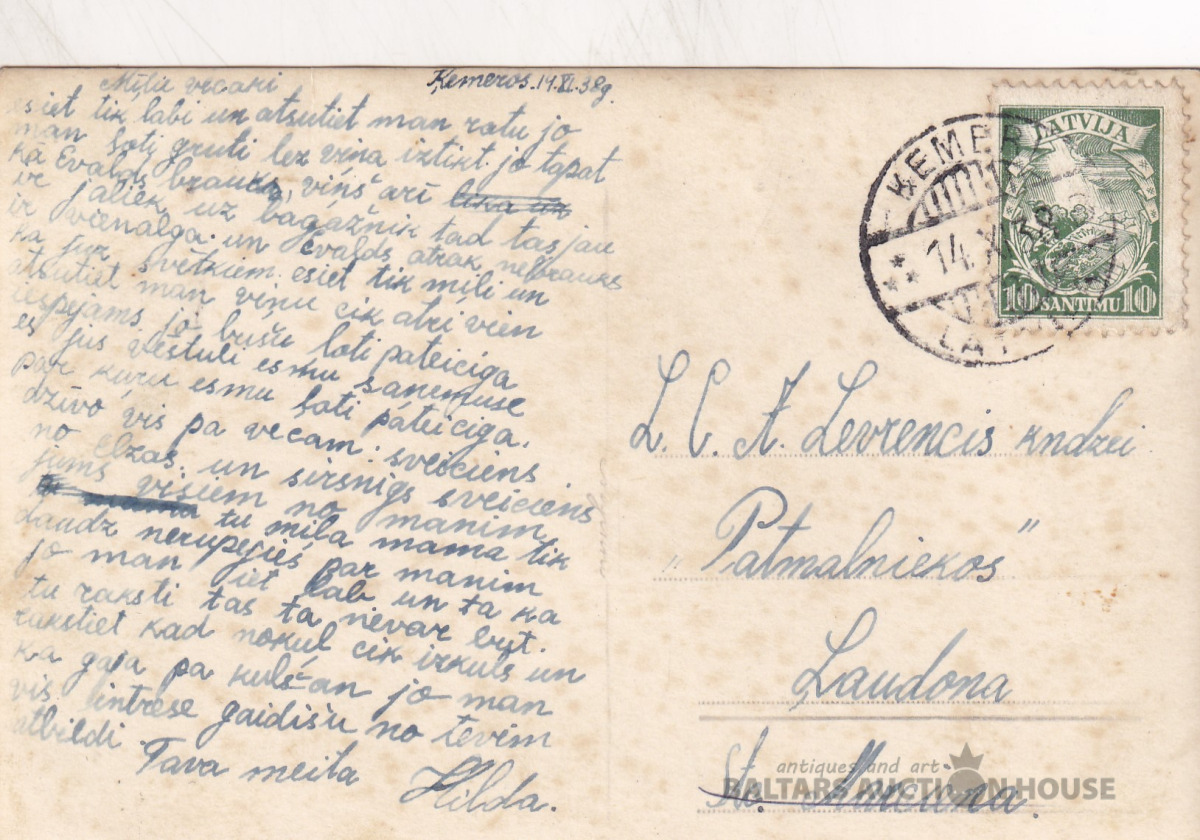 Ķemeros. 14.XI.38g.
Mīļie vecaki
esiet tik labi un atsutiet man ratu jo
man ļoti gruti bez viņa iztikt jo tapat
kā Evalds brauks, viņš arī
ir jaliek uz bagažnik tad tas jau
ir vienalga. un Evalds atrak nebrauks
ka juz svetkiem. esiet tik mīli un
atsutiet man viņu cik atri vien
iespejams jo bušu ļoti pateiciga
es jus vestuli esmu saņemuse
par kuru esmu ļoti pateiciga.
dzīvo vis pa vecam. sveiciens
no Elzas. un sirsnigs sveiciens
jums visiem no manim
tu mīla mama tik
daudz nerupejies par manim
jo man iet lab un ta ka
tu raksti tas ta nevar but.
rakstiet kad nokul cik izkuls un
ka gaja pa kulšan jo man
vis intrese gaidišu no tevim
atbildi. Tava meita
Hilda.
LATVIJA
10 SANTIMU 10
ĶEMERI
14. XI. 38
LATVIJA
L. C. A. Levrencis Andzei
„Patmalniekos"
Laudona
St.
antiques and art
BALTARS AUCTION HOUSE